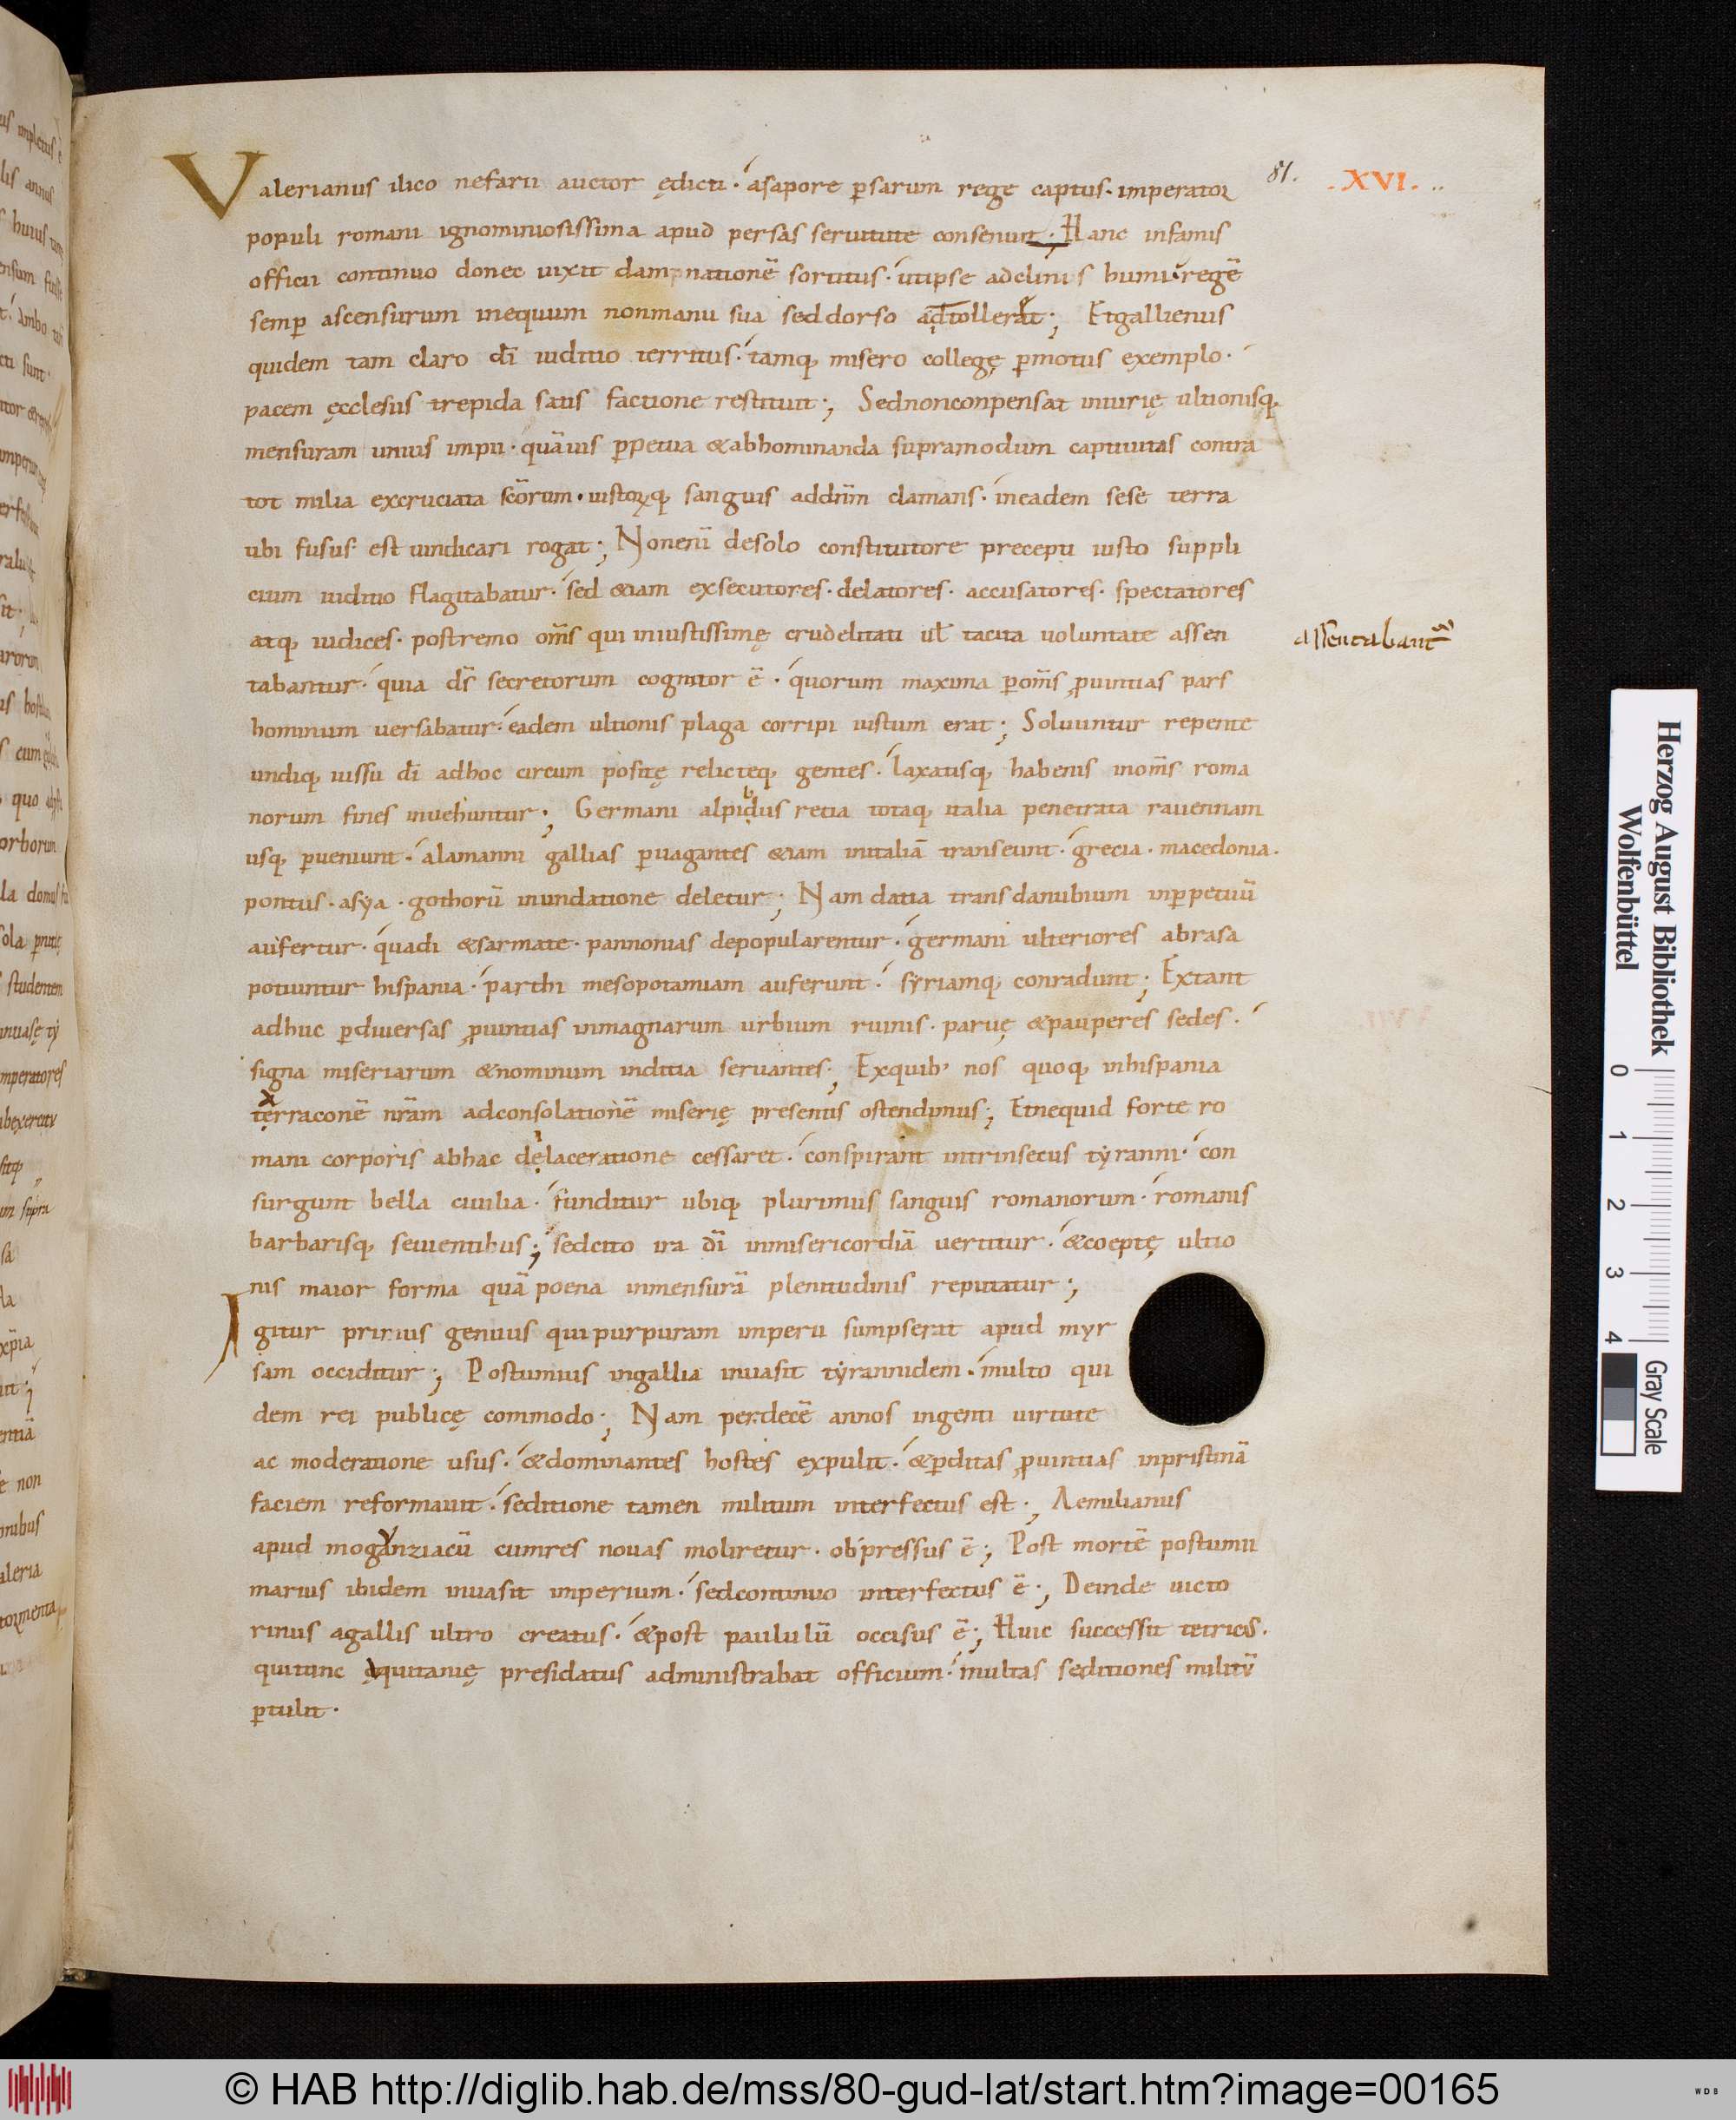 81. .XVI...
Valerianus ilico nefarii auctor ędicti · asapore ꝑsarum rege captus · imperator
populi romani ignominiosissima apud persas seruitute consenuit; Hanc infamis
officii continuo donec uixit dampnationē sortitus · ut ipse adclinis humi regē
semꝑ ascensurum inequum nonmanu sua seddorso adtolleret; Etgallienus
quidem tam claro dī iuditio territus · tamq; misero collegę ꝑmotus exemplo ·
pacem ęcclesiis trepida satis factione restituit; Sednonconpensat iniurię ultionisq;
mensuram unius impii · quāuis ꝑpetua &abhominanda supramodum captiuitas contra
tot milia excruciata scōrum · iustorꝝq; sanguis addnm̄ clamans · ineadem sese terra
ubi fusus est uindicari rogat; Nonenī desolo constitutore precepti iusto suppli
cium iuditio flagitabatur · sed &iam exsecutores · delatores · accusatores · spectatores
atq; iudices · postremo om̄s qui iniustissimę crudelitati ul̄ tacita uoluntate assen
assentabant̄
tabantur · quia ds̄ secretorum cognitor ē · quorum maxima ꝑom̄s ꝓuintias pars
hominum uersabatur · eadem ultionis plaga corripi iustum erat; Soluuntur repente
undiq; iussu dī adhoc circum positę relicteq; gentes · laxatisq; habenis inom̄s roma
norum fines inuehuntur; Germani alpibus retia totaq; italia penetrata rauennam
usq; ꝑueniunt · alamanni gallias ꝑuagantes &iam initaliā transeunt · grecia · macedonia ·
pontus · asya · gothorū inundatione deletur; Nam datia trans danubium inꝑpetuū
aufertur · quadi &sarmate · pannonias depopularentur · germani ulteriores abrasa
potiuntur hispania · parthi mesopotamiam auferunt · syriamq; conradunt; Extant
adhuc ꝑdiuersas ꝓuintias inmagnarum urbium ruinis · paruę &pauperes sedes ·
signa miseriarum &nominum inditia seruantes; Exquib; nos quoq; inhispania
terraconē nr̄am adconsolationē miserię presentis ostendimus; Etnequid forte ro
mani corporis abhac dęlaceratione cessaret · conspirant intrinsecus tyranni · con
surgunt bella ciuilia · funditur ubiq; plurimus sanguis romanorum · romanis
barbarisq; seuientibus; sedcito ira dī inmisericordiā uertitur · &coeptę ultio
nis maior forma quā poena inmensurā plenitudinis reputatur;
Igitur primus genuus quipurpuram imperii sumpserat apud myr
sam occiditur; Postumius ingallia inuasit tyrannidem · multo qui
dem rei publicę commodo; Nam perdecē annos ingenti uirtute
ac moderatione usus · &dominantes hostes expulit · &ꝑditas ꝓuintias inpristinā
faciem reformauit · seditione tamen militum interfectus est; Aemilianus
apud moganziacū cumres nouas moliretur · obpressus ē; Post mortē postumi
marius ibidem inuasit imperium · sedcontinuo interfectus ē; Deinde uicto
rinus agallis ultro creatus · &post paululū occisus ē; Huic successit tetricus ·
quitunc aquitanię presidatus administrabat officium · multas seditiones militū
ꝑtulit ·
Herzog August Bibliothek
Wolfenbüttel
0 1 2 3 4
Gray Scale
© HAB http://diglib.hab.de/mss/80-gud-lat/start.htm?image=00165
WDB